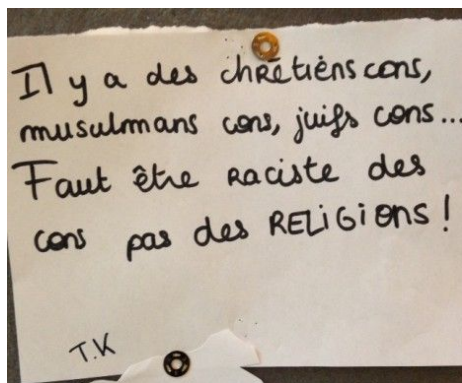 Il y a des chrétiens cons,
musulmans cons, juifs cons...
Faut être raciste des
cons pas des RELIGIONS !
T.K